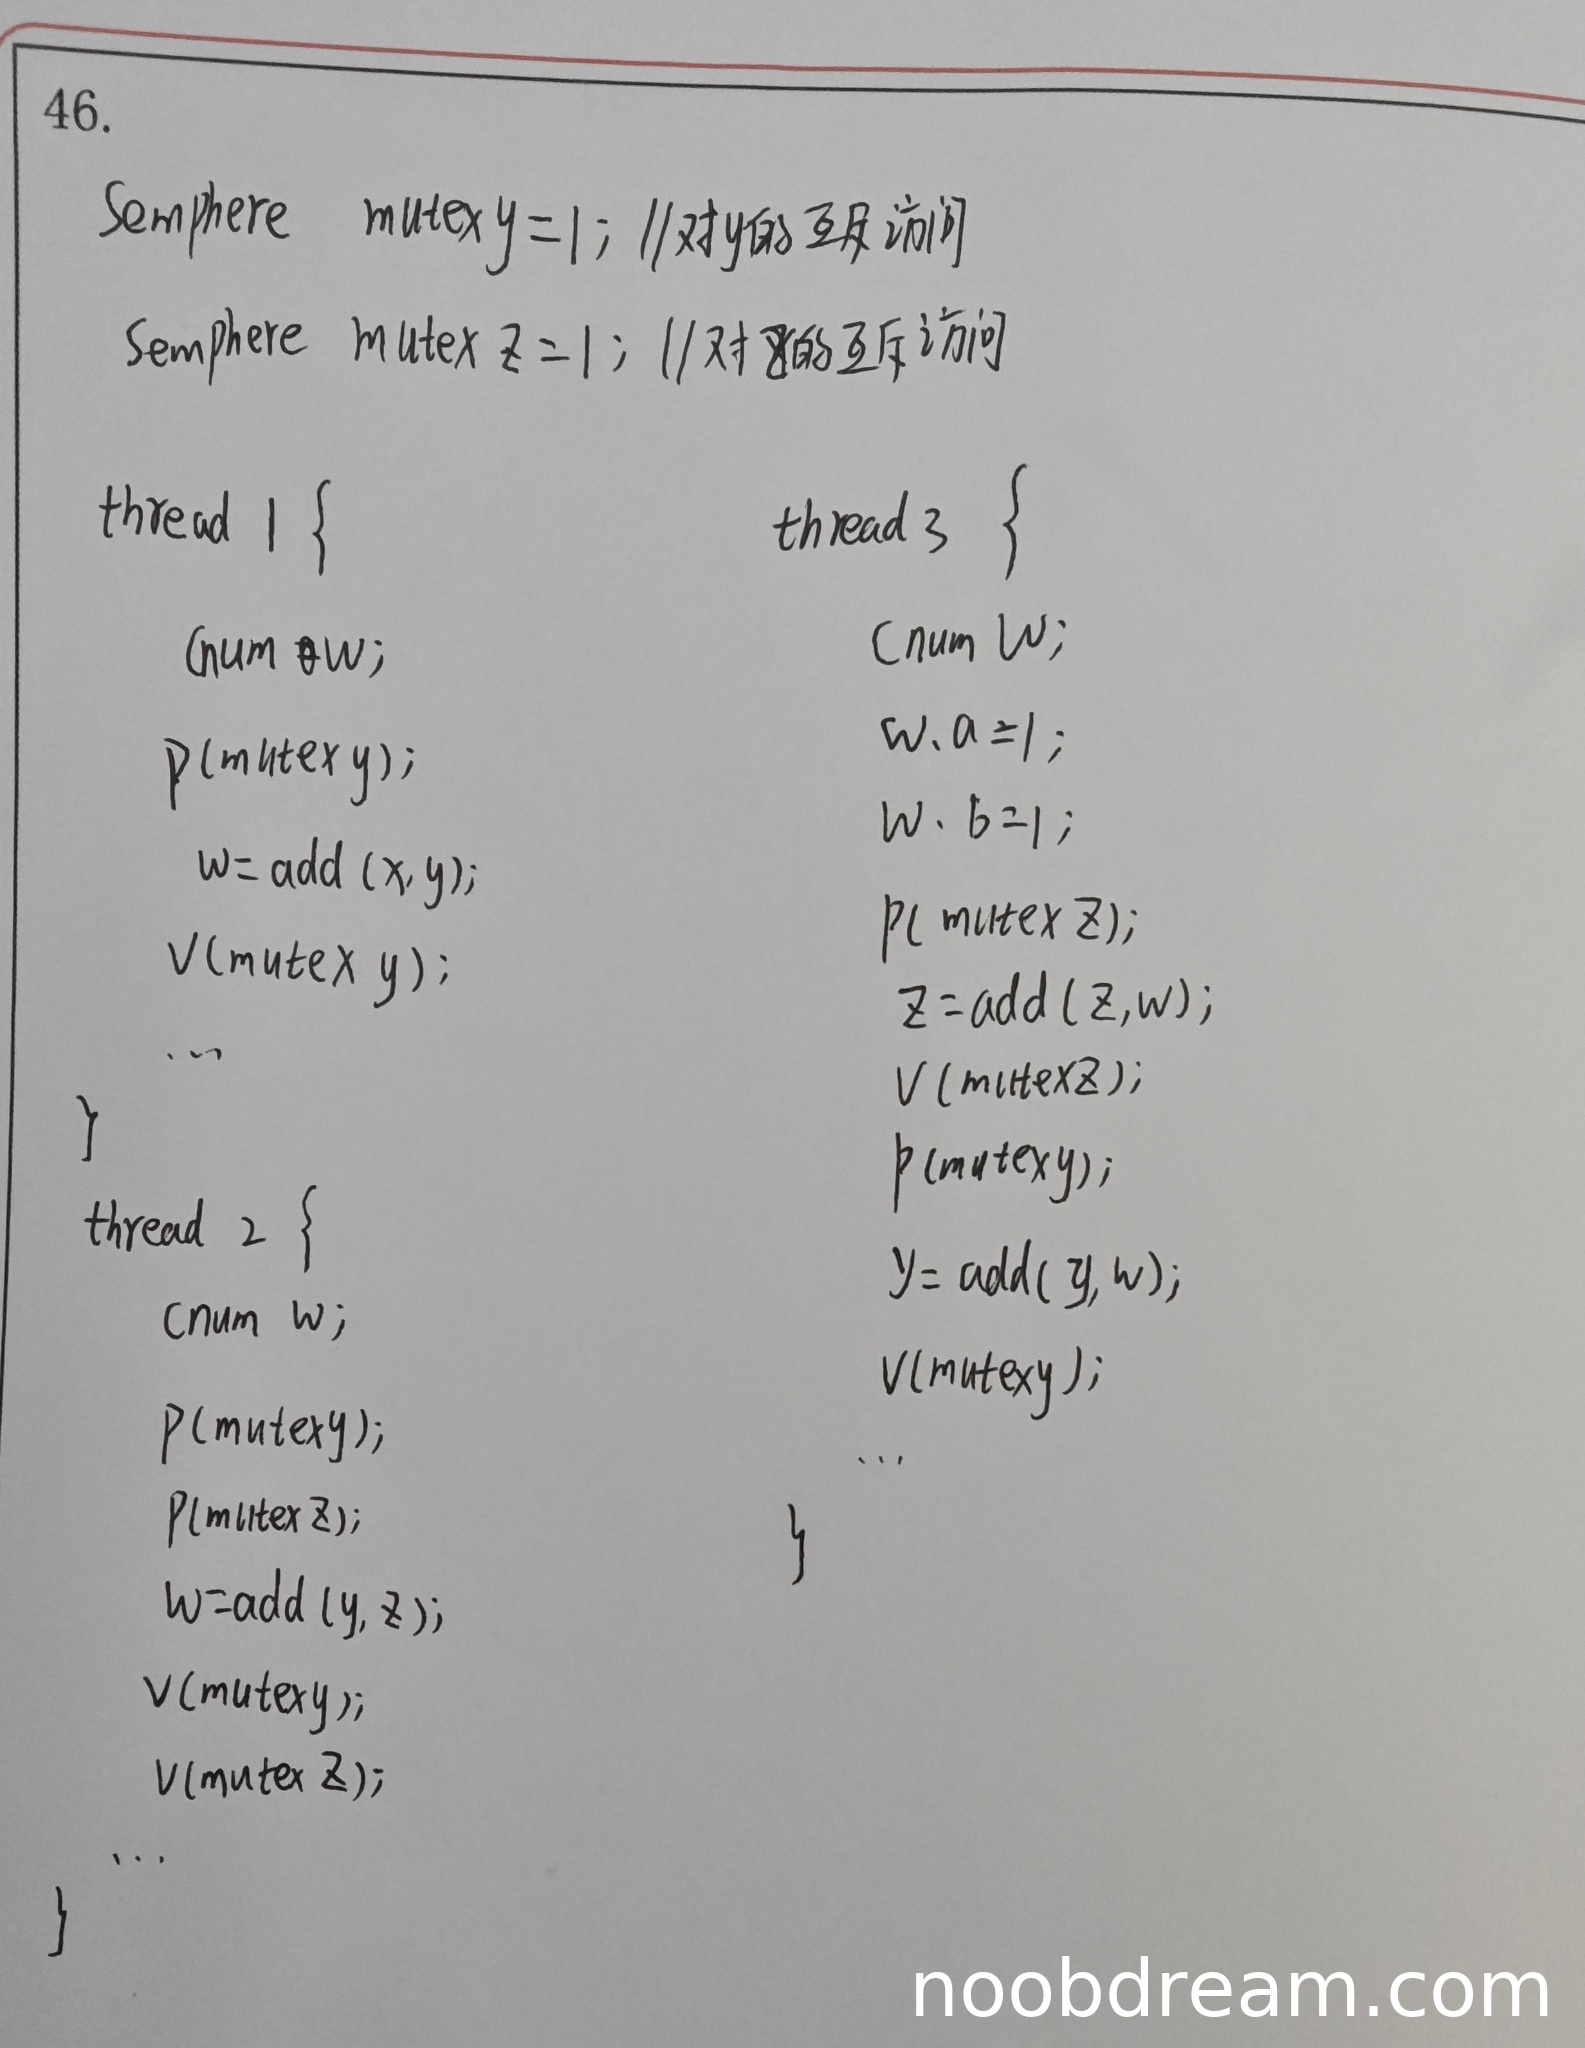 46.
Semphere mutexy=1; //对y的互斥访问
Semphere mutex z=1; //对z的互斥访问
thread 1 {
Cnum w;
p(mutex y);
w=add(x,y);
V(mutex y);
...
}
thread 2 {
Cnum w;
P(mutexy);
P(mutex z);
w=add(y,z);
V(mutexy);
V(mutex z);
...
}
thread 3 {
Cnum w;
w.a=1;
w.b=1;
p(mutex z);
z=add(z,w);
V(mutexz);
p(mutexy);
y=add(y,w);
V(mutexy);
...
}
noobdream.com